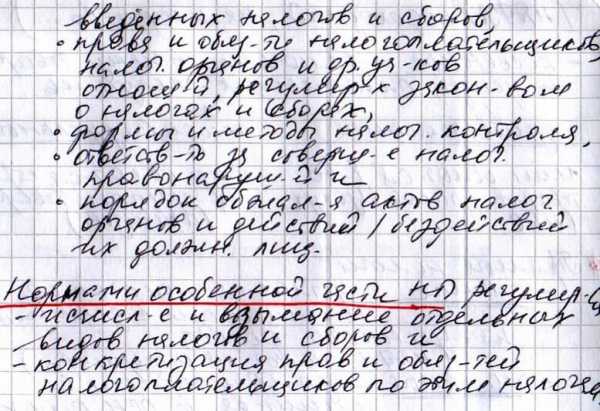 введенных налогов и сборов,
• права и обяз-ти налогоплательщиков,
налог. органов и др. уч-ков
отношен., регулир-х закон-вом
о налогах и сборах,
• формы и методы налог. контроля,
• ответств-ть за соверш-е налог.
правонаруш-й и
• порядок обжал-я актов налог
органов и действий / бездействий
их должн. лиц.
Нормами особенной части НП регулир-ся
- исчисл-е и взымание отдельных
видов налогов и сборов и
- конкретизация прав и обяз-тей
налогоплательщиков по этим налогам